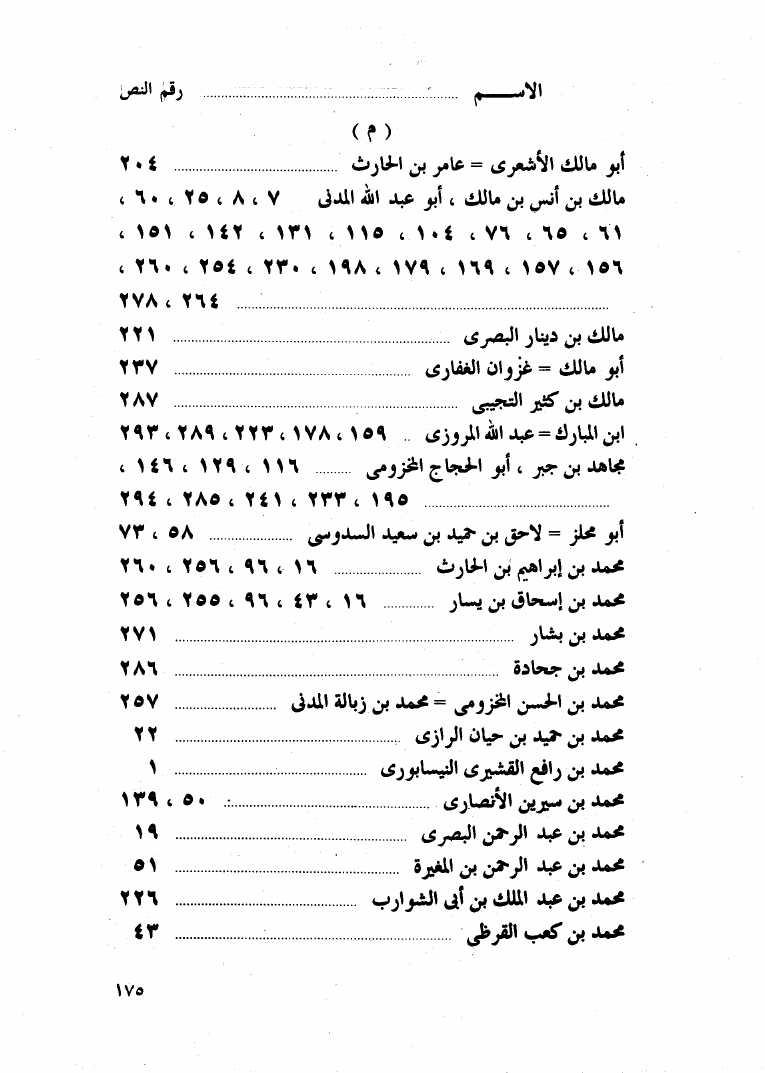 الاســـم ........ رقم النص
( م )
أبو مالك الأشعرى = عامر بن الحارث ........ ٢٠٤
مالك بن أنس بن مالك ، أبو عبد الله المدنى ٧ ، ٨ ، ٢٥ ، ٦٠ ،
٦١ ، ٦٥ ، ٧٦ ، ١٠٤ ، ١١٥ ، ١٣١ ، ١٤٢ ، ١٥١ ،
١٥٦ ، ١٥٧ ، ١٦٩ ، ١٧٩ ، ١٩٨ ، ٢٣٠ ، ٢٥٤ ، ٢٦٠ ،
........ ٢٦٤ ، ٢٧٨
مالك بن دينار البصرى ........ ٢٢١
أبو مالك = غزوان الغفارى ........ ٢٣٧
مالك بن كثير التجيبى ........ ٢٨٧
ابن المبارك = عبد الله المروزى .. ١٥٩ ، ١٧٨ ، ٢٢٣ ، ٢٨٩ ، ٢٩٣
مجاهد بن جبر ، أبو الحجاج المخزومى ........ ١١٦ ، ١٢٩ ، ١٤٦ ،
........ ١٩٥ ، ٢٣٣ ، ٢٤١ ، ٢٨٥ ، ٢٩٤
أبو مجلز = لاحق بن حميد بن سعيد السدوسى ........ ٥٨ ، ٧٣
محمد بن إبراهيم بن الحارث ........ ١٦ ، ٩٦ ، ٢٥٦ ، ٢٦٠
محمد بن إسحاق بن يسار ........ ١٦ ، ٤٣ ، ٩٦ ، ٢٥٥ ، ٢٥٦
محمد بن بشار ........ ٢٧١
محمد بن جحادة ........ ٢٨٦
محمد بن الحسن المخزومى = محمد بن زبالة المدنى ........ ٢٥٧
محمد بن حميد بن حيان الرازى ........ ٢٢
محمد بن رافع القشيرى النيسابورى ........ ١
محمد بن سيرين الأنصارى ........ ٥٠ ، ١٣٩
محمد بن عبد الرحمن البصرى ........ ١٩
محمد بن عبد الرحمن بن المغيرة ........ ٥١
محمد بن عبد الملك بن أبى الشوارب ........ ٢٢٦
محمد بن كعب القرظى ........ ٤٣
١٧٥